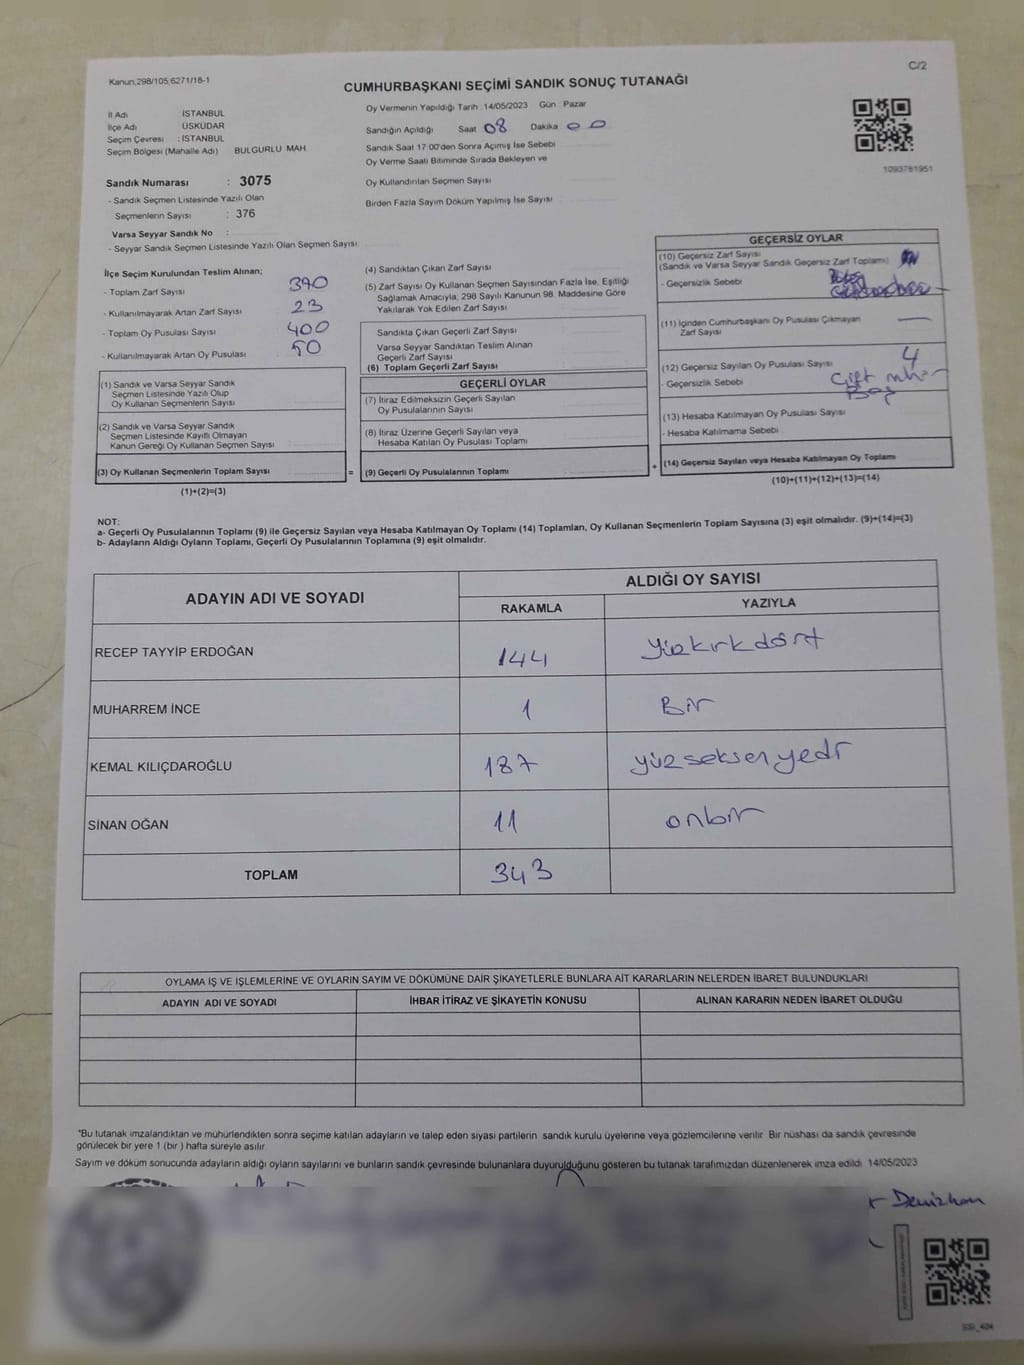 Kanun,298/105;6271/18-1
C/2
CUMHURBAŞKANI SEÇİMİ SANDIK SONUÇ TUTANAĞI
İl Adı İSTANBUL
İlçe Adı ÜSKÜDAR
Seçim Çevresi : İSTANBUL
Seçim Bölgesi (Mahalle Adı) BULGURLU MAH.
Sandık Numarası : 3075
- Sandık Seçmen Listesinde Yazılı Olan
Seçmenlerin Sayısı : 376
Varsa Seyyar Sandık No :
- Seyyar Sandık Seçmen Listesinde Yazılı Olan Seçmen Sayısı:
Oy Vermenin Yapıldığı Tarih :14/05/2023 Gün Pazar
Sandığın Açıldığı Saat 08 Dakika 00
Sandık Saat 17:00'den Sonra Açımış İse Sebebi
Oy Verme Saati Bitiminde Sırada Bekleyen ve
Oy Kullandırılan Seçmen Sayısı
Birden Fazla Sayım Döküm Yapılmış İse Sayısı
1093781951
İlçe Seçim Kurulundan Teslim Alınan;
- Toplam Zarf Sayısı 390
- Kullanılmayarak Artan Zarf Sayısı 23
- Toplam Oy Pusulası Sayısı 400
- Kullanılmayarak Artan Oy Pusulası 50
(1) Sandık ve Varsa Seyyar Sandık
Seçmen Listesinde Yazılı Olup
Oy Kullanan Seçmenlerin Sayısı
(2) Sandık ve Varsa Seyyar Sandık
Seçmen Listesinde Kayıtlı Olmayan
Kanun Gereği Oy Kullanan Seçmen Sayısı
(3) Oy Kullanan Seçmenlerin Toplam Sayısı =
(1)+(2)=(3)
(4) Sandıktan Çıkan Zarf Sayısı
(5) Zarf Sayısı Oy Kullanan Seçmen Sayısından Fazla İse, Eşitliği
Sağlamak Amacıyla; 298 Sayılı Kanunun 98. Maddesine Göre
Yakılarak Yok Edilen Zarf Sayısı
Sandıkta Çıkan Geçerli Zarf Sayısı
Varsa Seyyar Sandıktan Teslim Alınan
Geçerli Zarf Sayısı
(6) Toplam Geçerli Zarf Sayısı
GEÇERLİ OYLAR
(7) İtiraz Edilmeksizin Geçerli Sayılan
Oy Pusulalarının Sayısı
(8) İtiraz Üzerine Geçerli Sayılan veya
Hesaba Katılan Oy Pusulası Toplamı
(9) Geçerli Oy Pusulalarının Toplamı +
GEÇERSİZ OYLAR
(10) Geçersiz Zarf Sayısı
(Sandık ve Varsa Seyyar Sandık Geçersiz Zarf Toplamı)
- Geçersizlik Sebebi
(11) İçinden Cumhurbaşkanı Oy Pusulası Çıkmayan
Zarf Sayısı
(12) Geçersiz Sayılan Oy Pusulası Sayısı 4
- Geçersizlik Sebebi Çift
(13) Hesaba Katılmayan Oy Pusulası Sayısı
- Hesaba Katılmama Sebebi
(14) Geçersiz Sayılan veya Hesaba Katılmayan Oy Toplamı
(10)+(11)+(12)+(13)=(14)
NOT:
a- Geçerli Oy Pusulalarının Toplamı (9) ile Geçersiz Sayılan veya Hesaba Katılmayan Oy Toplamı (14) Toplamları, Oy Kullanan Seçmenlerin Toplam Sayısına (3) eşit olmalıdır. (9)+(14)=(3)
b- Adayların Aldığı Oyların Toplamı, Geçerli Oy Pusulalarının Toplamına (9) eşit olmalıdır.
ADAYIN ADI VE SOYADI ALDIĞI OY SAYISI
RAKAMLA YAZIYLA
RECEP TAYYİP ERDOĞAN 144 yüzkırkdört
MUHARREM İNCE 1 Bir
KEMAL KILIÇDAROĞLU 187 yüzseksenyedi
SİNAN OĞAN 11 onbir
TOPLAM 343
OYLAMA İŞ VE İŞLEMLERİNE VE OYLARIN SAYIM VE DÖKÜMÜNE DAİR ŞİKAYETLERLE BUNLARA AİT KARARLARIN NELERDEN İBARET BULUNDUKLARI
ADAYIN ADI VE SOYADI İHBAR İTİRAZ VE ŞİKAYETİN KONUSU ALINAN KARARIN NEDEN İBARET OLDUĞU
*Bu tutanak imzalandıktan ve mühürlendikten sonra seçime katılan adayların ve talep eden siyasi partilerin sandık kurulu üyelerine veya gözlemcilerine verilir. Bir nüshası da sandık çevresinde
görülecek bir yere 1 (bir ) hafta süreyle asılır.
Sayım ve döküm sonucunda adayların aldığı oyların sayılarını ve bunların sandık çevresinde bulunanlara duyurulduğunu gösteren bu tutanak tarafımızdan düzenlenerek imza edildi. 14/05/2023
Denizhan